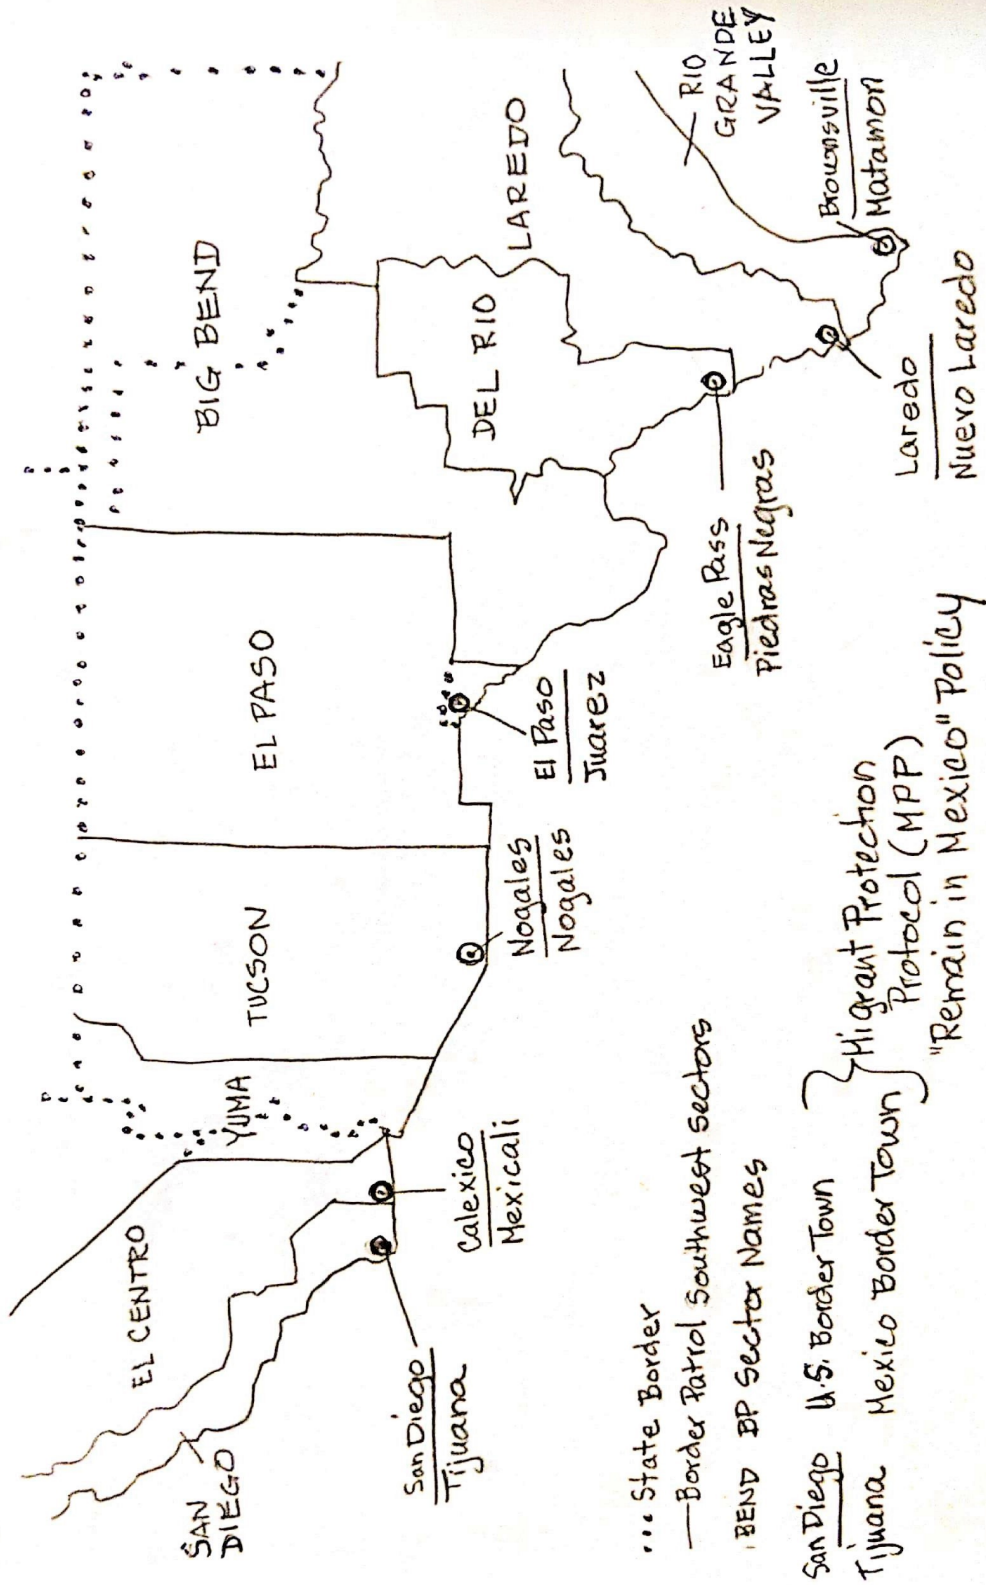 SAN
DIEGO
EL CENTRO
YUMA
TUCSON
EL PASO
BIG BEND
DEL RIO
LAREDO
RIO
GRANDE
VALLEY
San Diego
Tijuana
Calexico
Mexicali
Nogales
Nogales
El Paso
Juarez
Eagle Pass
Piedras Negras
Laredo
Nuevo Laredo
Brownsville
Matamon
... State Border
— Border Patrol Southwest sectors
BEND BP Sector Names
San Diego U.S. Border Town
Tijuana Mexico Border Town
Migrant Protection
Protocol (MPP)
"Remain in Mexico" Policy